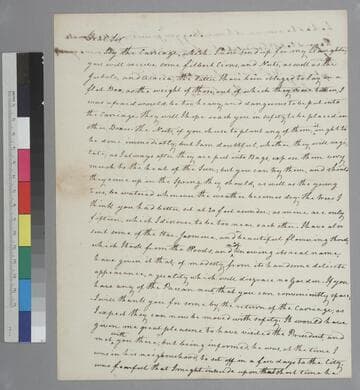 Dear Sir
By the Carriage, which I now send up for my Daughter,
you will receive some filbert Cions, and Nuts, as well as the
and Acacia, the latter I have been obliged to lay in a
flat Box, as the weight of them, out of which they were taken, I
was afraid would be too heavy, and dangerous to be put into
the Carriage. They will I hope reach you in safety to be placed in
other Boxes. The Nuts, if you chuse to plant any of them, ought to
be done immediately, but I am doubtful, whether they will vege-
tate, as I always after they are put into Bags expose them very
much to the heat of the Sun; but you can try them, and should
they come up in the Spring they should, as well as the young
ones, be watered whenever the weather becomes dry. The Trees I
think you had better set at 20 feet asunder, as mine are only
fifteen, which I discover to be too near each other. I have also
sent some of the Star Jasmine, and a beautiful flowering shrub,
which I took from the Woods, and not knowing its real name,
have given it that, of modesty, from its handsome delicate
appearance, a quality which will disgrace no Garden. If you
have any of the Pecan nuts that you can conveniently spare,
I will thank you for some by the return of the Carriage, as
I expect they can now be moved with safety. It would have
given me great pleasure to have visited the President and
met with you there, but being informed, he was at the time I
was in his neighbourhood to set off in a few days to the City
was fearful that I might intrude upon that short time he